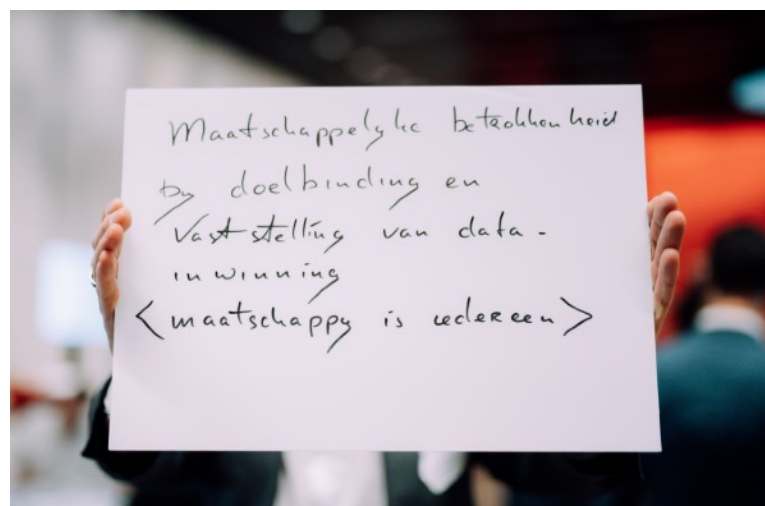 Maatschappelyke betrokkenheid
by doelbinding en
Vaststelling van data-
inwinning
<maatschappy is iedereen>